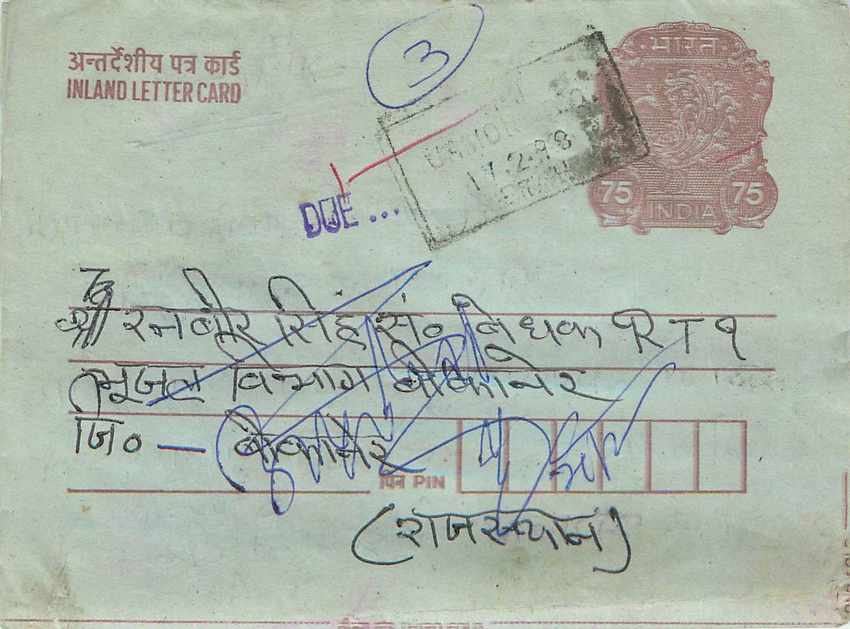 अन्तर्देशीय पत्र कार्ड
INLAND LETTER CARD
3
भारत
75 75
INDIA
17.2.98
DUE ...
To
श्री रनबीर सिंह सं० वेधक RT १
भूजल विभाग बीकानेर
जि० — बीकानेर
पिन PIN
(राजस्थान)